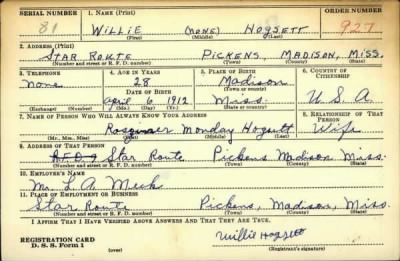 SERIAL NUMBER 1. NAME (Print) ORDER NUMBER
81 WILLIE (NONE) HOGSETT 927
(First) (Middle) (Last)
2. ADDRESS (Print)
STAR ROUTE PICKENS, MADISON, MISS.
(Number and street or R. F. D. number) (Town) (County) (State)
3. TELEPHONE 4. AGE IN YEARS 5. PLACE OF BIRTH 6. COUNTRY OF CITIZENSHIP
None 28 Madison
DATE OF BIRTH (Town or county)
April 6, 1912 Miss. U.S.A.
(Exchange) (Number) (Mo.) (Day) (Yr.) (State or country)
7. NAME OF PERSON WHO WILL ALWAYS KNOW YOUR ADDRESS 8. RELATIONSHIP OF THAT PERSON
Monday Hogsett Wife
(Mr., Mrs., Miss) (First) (Middle) (Last)
9. ADDRESS OF THAT PERSON
Star Route Pickens Madison Miss.
(Number and street or R. F. D. number) (Town) (County) (State)
10. EMPLOYER'S NAME
Mr. L. A. Meek
11. PLACE OF EMPLOYMENT OR BUSINESS
Star Route Pickens, Madison, Miss.
(Number and street or R. F. D. number) (Town) (County) (State)
I AFFIRM THAT I HAVE VERIFIED ABOVE ANSWERS AND THAT THEY ARE TRUE.
REGISTRATION CARD Willie Hogsett
D. S. S. Form 1 (over) (Registrant's signature)